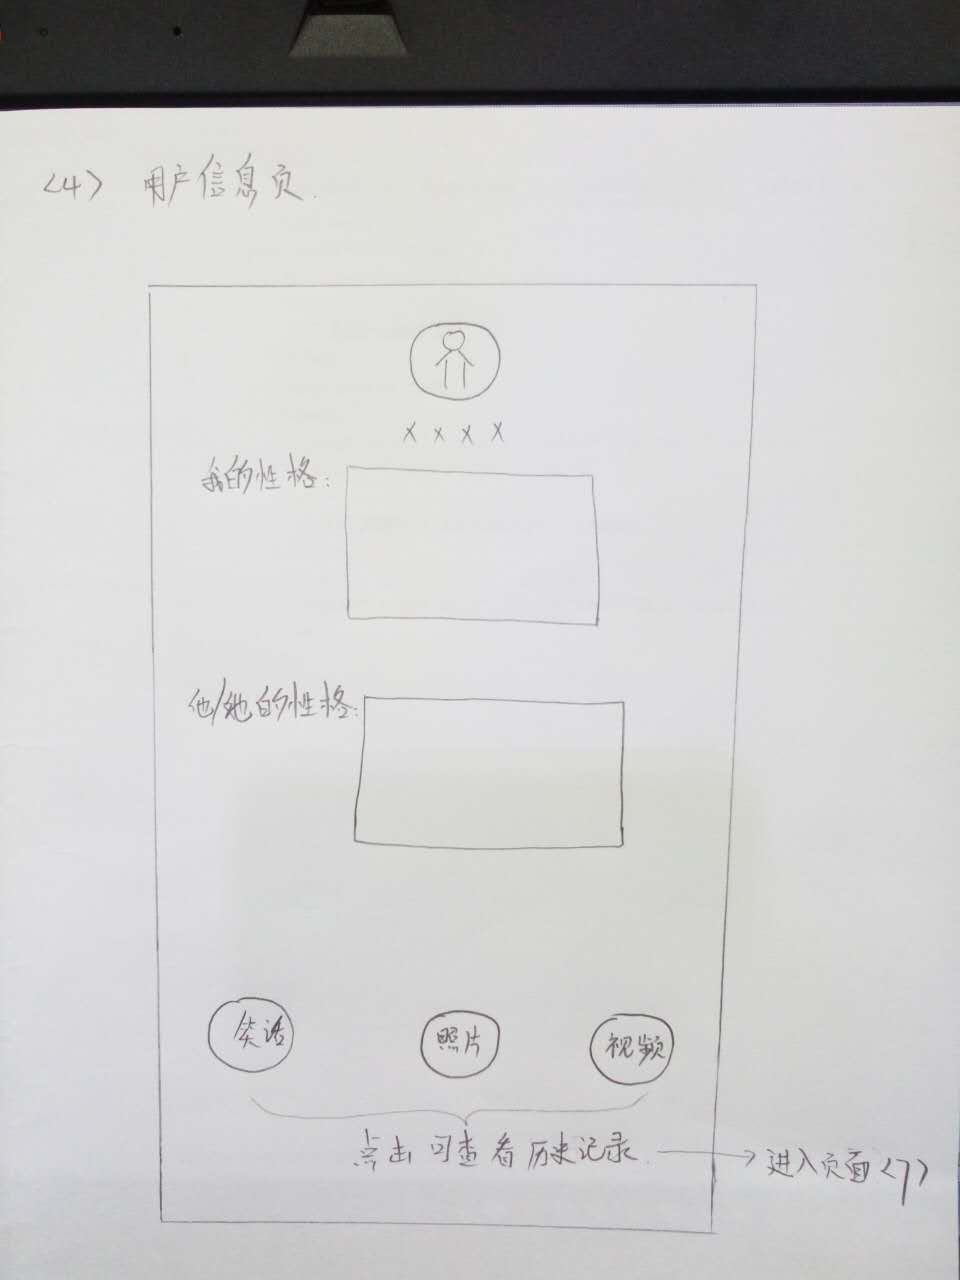 <4> 用户信息页.
x x x x
我的性格:
他/她的性格:
笑话
照片
视频
点击可查看历史记录.
进入页面<7>